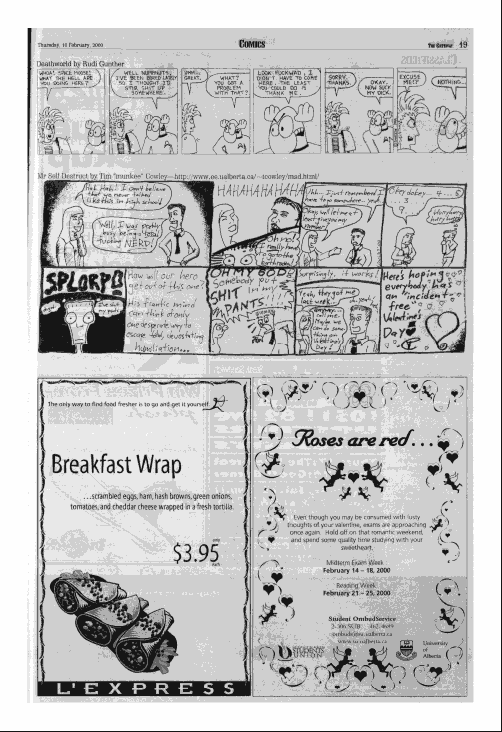 Thursday, 10 February, 2000
COMICS
THE GATEWAY 19
Deathworld by Rudi Gunther
WHOA! SPACE MOOSE!
WHAT THE HELL ARE
YOU DOING HERE?
WELL NUMBNUTS,
I'VE BEEN BORED LATELY
SO I THOUGHT I'D
STIR SHIT UP
SOMEWHERE.
GREAT.
WHAT?
YOU GOT A
PROBLEM
WITH THAT?
LOOK FUCKWAD, I
DIDN'T HAVE TO COME
HERE. THE LEAST
YOU COULD DO IS
THANK ME.
SORRY.
THANKS.
OKAY.
NOW SUCK
MY DICK.
EXCUSE
ME!?
NOTHING...
Mr Self Destruct by Tim "munkee" Cowley—http://www.ee.ualberta.ca/~tcowley/mad.html/
Hah, Hah! I can't believe
that we never talked
like this in high school
Well, I was pretty
busy being a total
fucking NERD!
HAHAHAHAHAHA
Oh no!
I really have
to go to the
bathroom!
I just remembered I
have to go somewhere... yeah
Okay, well let me at
least give you my
number!
Okey dokey... 4... 5
3
SPLORP!
I've shit
my pants
How will our hero
get out of this one?
His frantic mind
can think of only
one desperate way to
escape total, devastating
humiliation...
OH MY GOD!
Somebody put
SHIT in my
PANTS!
Surprisingly, it works!
Yeah, they got me
last week!
Here's hoping
everybody has
an "incident
free"
Valentine's
Day
The only way to find food fresher is to go and get it yourself.
Breakfast Wrap
...scrambled eggs, ham, hash browns, green onions,
tomatoes, and cheddar cheese wrapped in a fresh tortilla.
$3.95
L'EXPRESS
Roses are red...
Even though you may be consumed with lusty
thoughts of your valentine, exams are approaching
once again. Hold off on that romantic weekend,
and spend some quality time studying with your
sweetheart.
Midterm Exam Week
February 14 – 18, 2000
Reading Week
February 21 – 25, 2000
Student OmbudService
STUDENTS'
UNION
University
of
Alberta